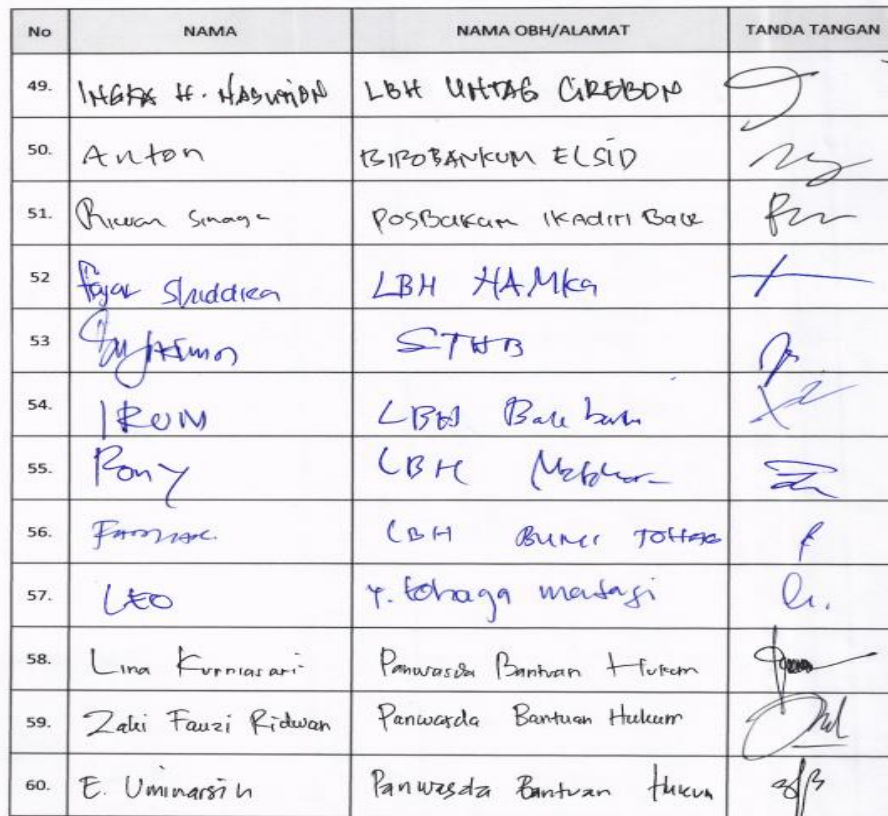 No NAMA NAMA OBH/ALAMAT TANDA TANGAN
49. H. NASUTION LBH UNTAG CIREBON
50. Anton BIROBANKUM ELSID
51. Riwan Sinaga POSBAKUM IKADIN Bale
52 Fajar Shiddieq LBH HAMKa
53 STHB
54. LBH Bale
55. Rony LBH
56. LBH BUMI TOHAGA
57. LEO Y. tohaga
58. Lina Kurniasari Panwasda Bantuan Hukum
59. Zaki Fauzi Ridwan Panwasda Bantuan Hukum
60. E. Uminarsih Panwasda Bantuan Hukum